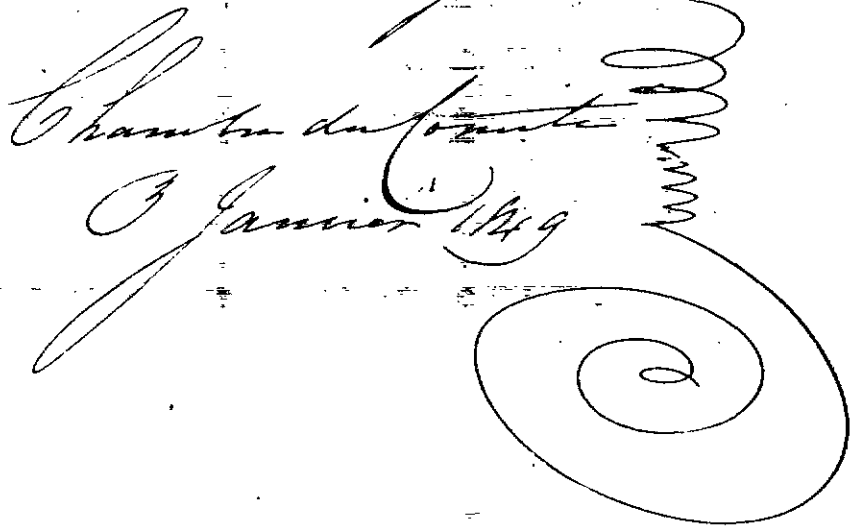 Chambre du Comité
3 Janvier 1849